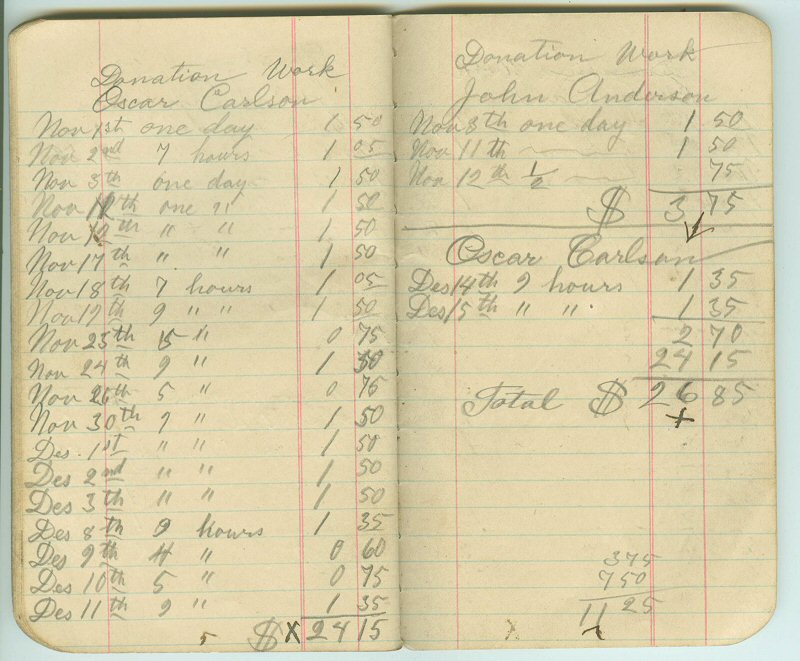 Donation Work
Oscar Carlson
Nov 1st one day 1 50
Nov 2nd 7 hours 1 05
Nov 3th one day 1 50
Nov 11th one " 1 50
Nov 12th " " 1 50
Nov 17th " " 1 50
Nov 18th 7 hours 1 05
Nov 19th 9 " " 1 50
Nov 23th 5 " 0 75
Nov 24th 9 " 1 50
Nov 26th 5 " 0 75
Nov 30th 9 " 1 50
Des. 1st " " 1 50
Des 2nd " " 1 50
Des 3th " " 1 50
Des 8th 9 hours 1 35
Des 9th 4 " 0 60
Des 10th 5 " 0 75
Des 11th 9 " 1 35
5 $ X 24 15
Donation Work
John Anderson
Nov 8th one day 1 50
Nov 11th 1 50
Nov 12th 1/2 75
$ 3 75
Oscar Carlson
Des 14th 9 hours 1 35
Des 15th " " 1 35
2 70
24 15
Total $ 26 85
375
750
11 25